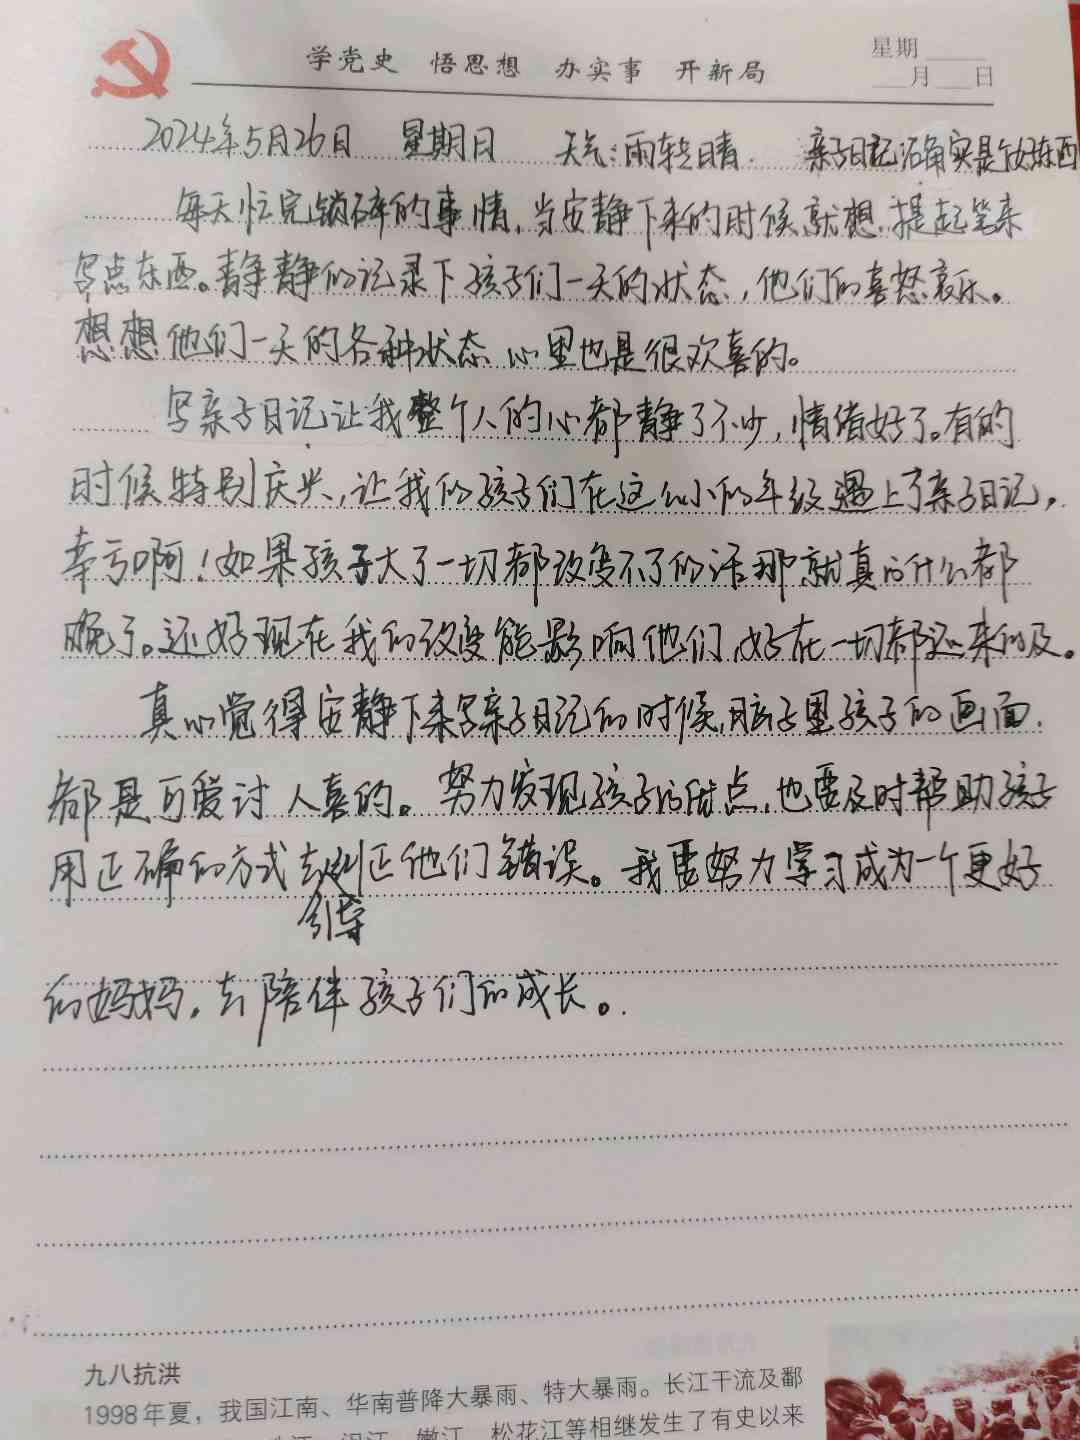 学党史 悟思想 办实事 开新局
星期
月 日
2024年5月26日 星期日 天气:雨转晴. 亲子日记 确实是个好东西
每天忙完锁碎的事情,当安静下来的时候就想.提起笔来
写点东西。静静的记录下孩子们一天的状态,他们的喜怒哀乐。
想想他们一天的各种状态 心里也是很欢喜的。
写亲子日记让我整个人的心都静了不少,情绪好了。有的
时候特别庆兴,让我的孩子们在这么小的年级遇上了亲子日记,
幸亏啊!如果孩子大了一切都改变不了的话那就真的什么都
晚了。还好现在我的改变能影响他们,好在一切都还来的及。
真心觉得安静下来写亲子日记的时候,脑子里孩子的画面.
都是可爱讨人喜的。努力发现孩子的优点,也要及时帮助孩子
用正确的方式去纠正他们错误。我要努力学习成为一个更好
引导
的妈妈,去陪伴孩子们的成长。
九八抗洪
1998年夏,我国江南、华南普降大暴雨、特大暴雨。长江干流及鄱
嫩江、松花江等相继发生了有史以来